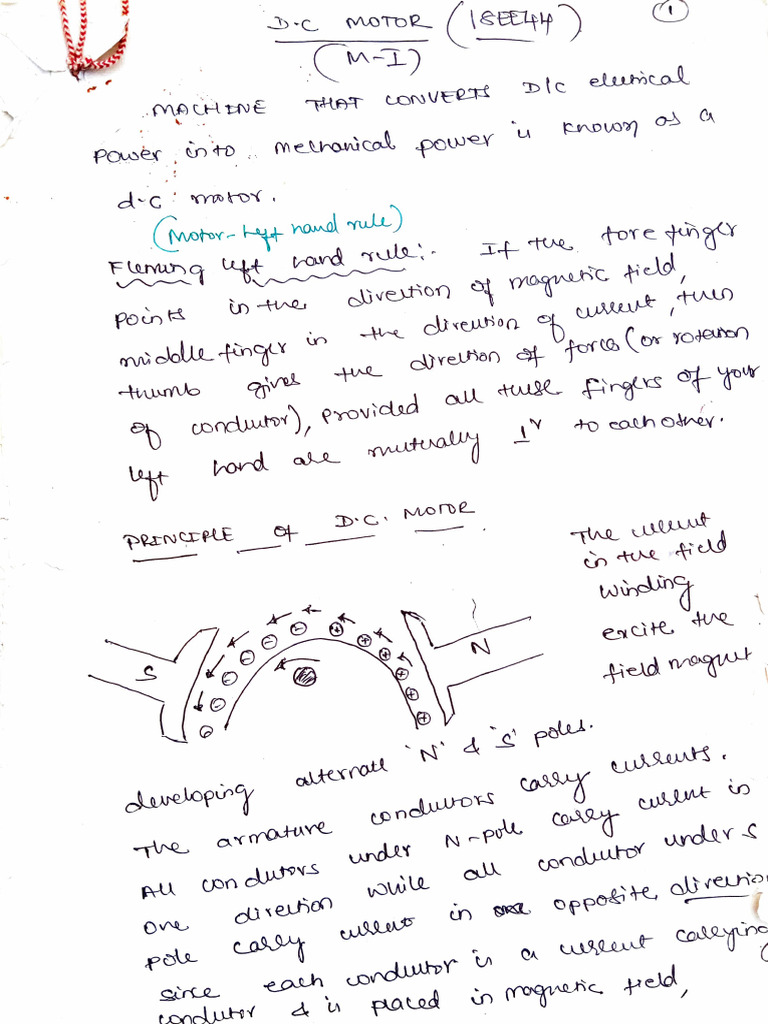 1
D.C MOTOR (18EE44)
(M-I)
MACHINE THAT CONVERTS D/C electrical
power into mechanical power is known as a
d.c motor.
(Motor-Left hand rule)
Fleming left hand rule:- If the fore finger
points in the direction of magnetic field,
middle finger in the direction of current, then
thumb gives the direction of force (or rotation
of conductor), provided all these fingers of your
left hand are mutually ⊥r to each other.
PRINCIPLE of D.C. MOTOR
The current
in the field
winding
excite the
field magnet
S
N
developing alternate 'N' & 'S' poles.
The armature conductors carry currents.
All condutors under N-pole carry current in
one direction while all conductor under S
pole carry current in opposite direction
since each conductor is a current carrying
condutor & is placed in magnetic field,